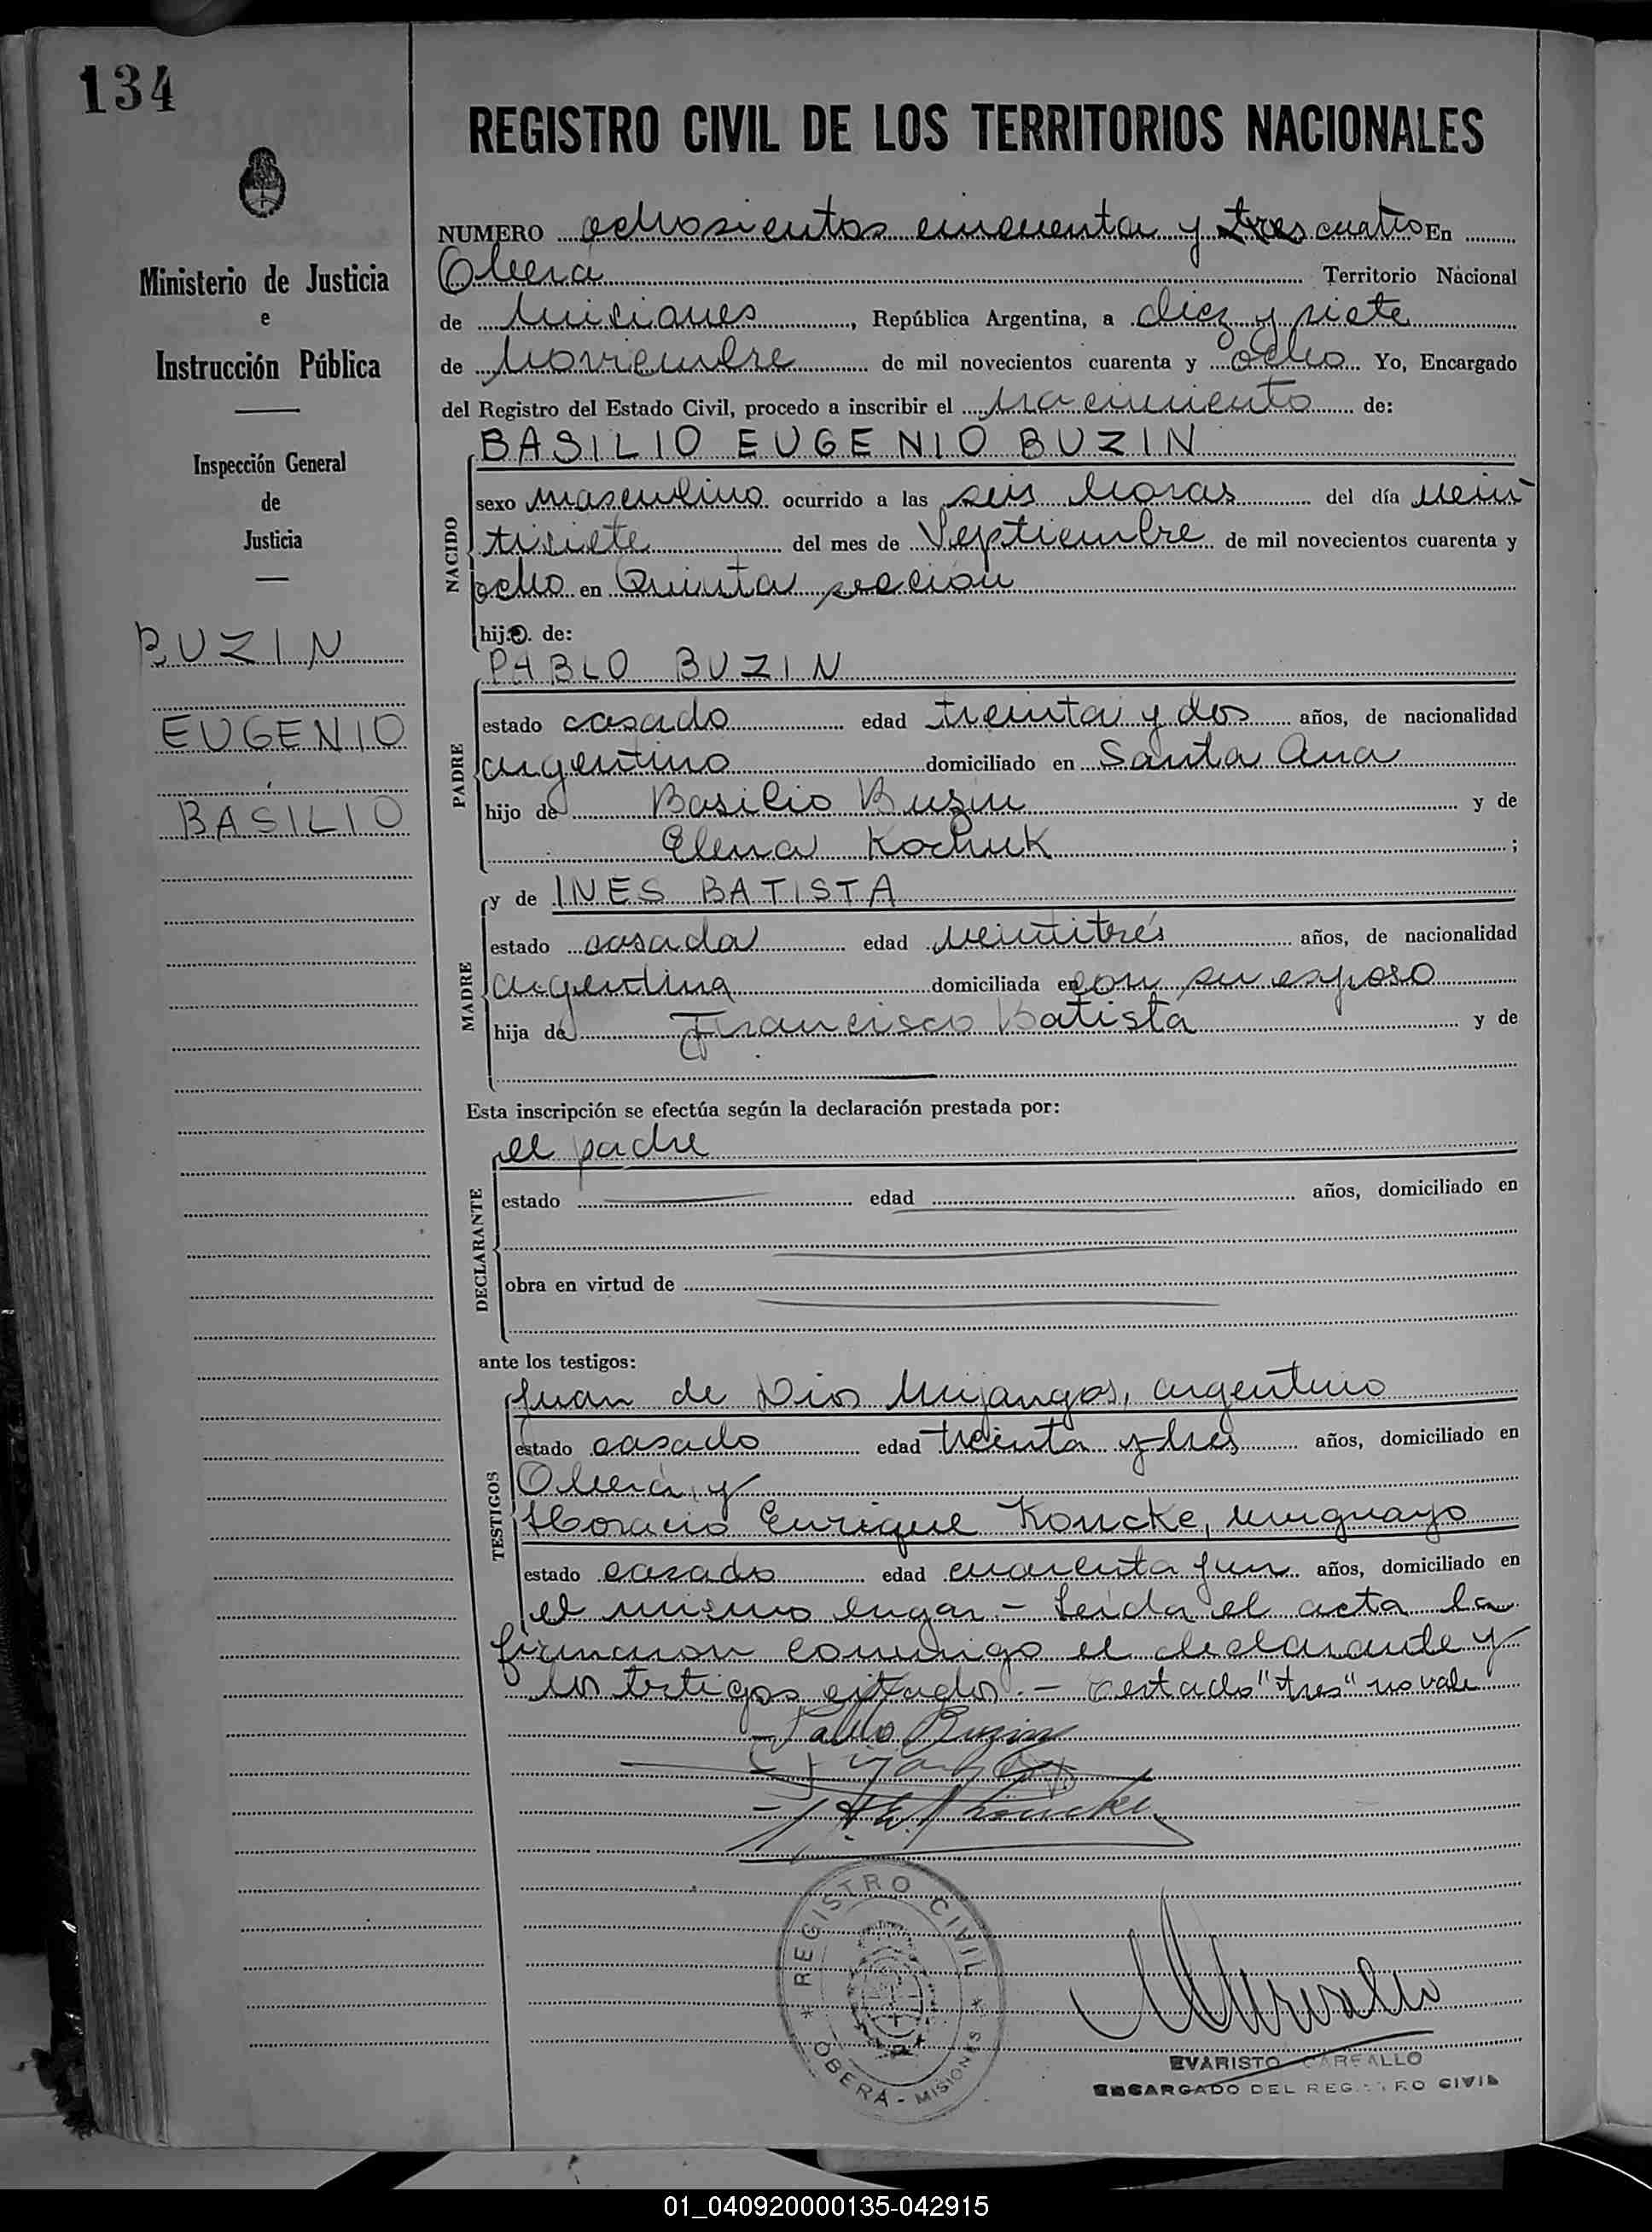 134
REGISTRO CIVIL DE LOS TERRITORIOS NACIONALES
Ministerio de Justicia
e
Instrucción Pública
Inspección General
de
Justicia
BUZIN
EUGENIO
BASILIO
NUMERO ochosientos cincuenta y tres cuatro En
Oberá Territorio Nacional
de Misiones, República Argentina, a diez y siete
de Noviembre de mil novecientos cuarenta y ocho Yo, Encargado
del Registro del Estado Civil, procedo a inscribir el nacimiento de:
NACIDO
BASILIO EUGENIO BUZIN
sexo masculino ocurrido a las seis horas del día vein
tisiete del mes de Septiembre de mil novecientos cuarenta y
ocho en Quinta sección
hijo. de:
PADRE
PABLO BUZIN
estado casado edad treinta y dos años, de nacionalidad
argentino domiciliado en Santa Ana
hijo de Basilio Buzin y de
Elena Kochuk ;
MADRE
y de INES BATISTA
estado casada edad veintitrés años, de nacionalidad
argentina domiciliada en con su esposo
hija de Francisco Batista y de
Esta inscripción se efectúa según la declaración prestada por:
DECLARANTE
el padre
estado edad años, domiciliado en
obra en virtud de
ante los testigos:
TESTIGOS
Juan de Dios Mijangos, argentino
estado casado edad treinta y tres años, domiciliado en
Oberá y
Horacio Enrique Koncke, uruguayo
estado casado edad cuarenta y un años, domiciliado en
el mismo lugar.- Leida el acta la
firmaron conmigo el declarante y
los testigos citados.- testado "tres" no vale
Pablo Buzin
H. E. Koncke
REGISTRO CIVIL
OBERÁ - MISIONES
EVARISTO CARFALLO
ENCARGADO DEL REGISTRO CIVIL
01_040920000135-042915